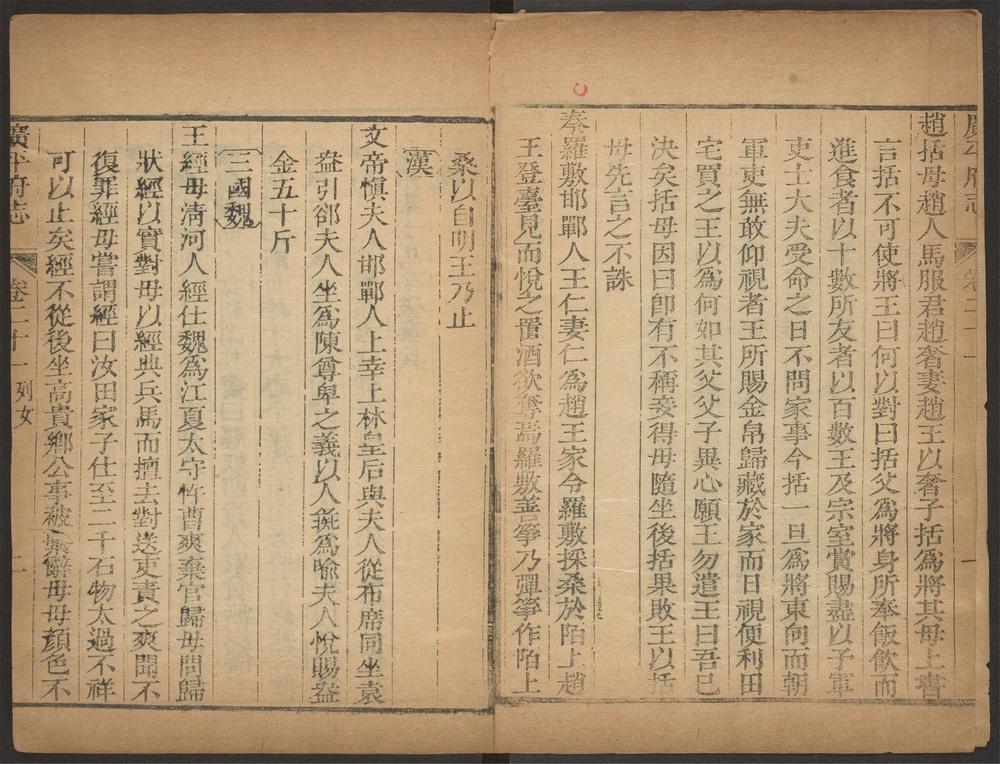 廣平府志 卷二十一
趙括母趙人馬服君趙奢妻趙王以奢子括爲將其母上書
言括不可使將王曰何以對曰括父爲將身所奉飯飲而
進食者以十數所友者以百數王及宗室賞賜盡以予軍
吏士大夫受命之日不問家事今括一旦爲將東向而朝
軍吏無敢仰視者王所賜金帛歸藏於家而日視便利田
宅買之王以爲何如其父父子異心願王勿遣王曰吾已
決矣括母因曰卽有不稱妾得毋隨坐後括果敗王以括
母先言之不誅
秦羅敷邯鄲人王仁妻仁爲趙王家令羅敷採桑於陌上趙
王登臺見而悅之置酒欲奪焉羅敷善箏乃彈箏作陌上
桑以自明王乃止
漢
文帝愼夫人邯鄲人上幸上林皇后與夫人從布席同坐袁
盎引郤夫人坐爲陳尊卑之義以人彘爲喻夫人悅賜盎
金五十斤
三國魏
王經母淸河人經仕魏爲江夏太守忤曹爽棄官歸母問歸
狀經以實對母以經典兵馬而擅去對送吏責之爽聞不
復罪經母嘗謂經曰汝田家子仕至二千石物太過不祥
可以止矣經不從後坐高貴鄉公事被收辭母母顏色不
廣平府志 卷二十一 列女 二